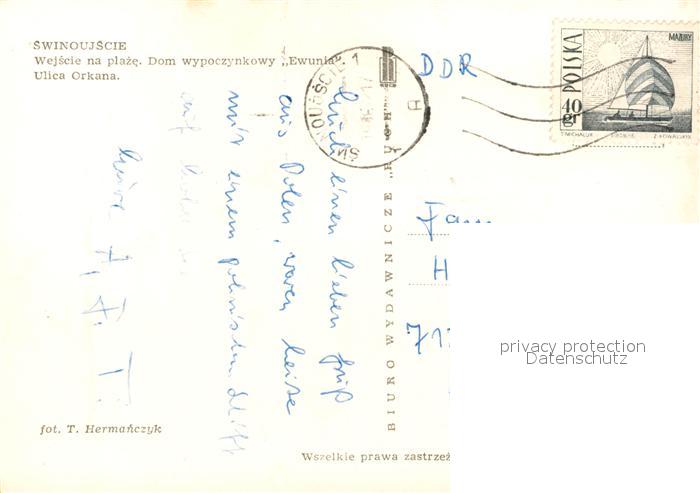 ŚWINOUJŚCIE
Wejście na plażę. Dom wypoczynkowy „Ewunia"
Ulica Orkana.
ŚWINOUJŚCIE 1
DDR
MAZURY
POLSKA
40 gr
BIURO WYDAWNICZE „RUCH"
Fa...
H
71
privacy protection
Datenschutz
einen lieben Gruß
aus Polen, waren heute
mit einem polnischen Schiff
auf
A. F. T.
fot. T. Hermańczyk
Wszelkie prawa zastrzeż